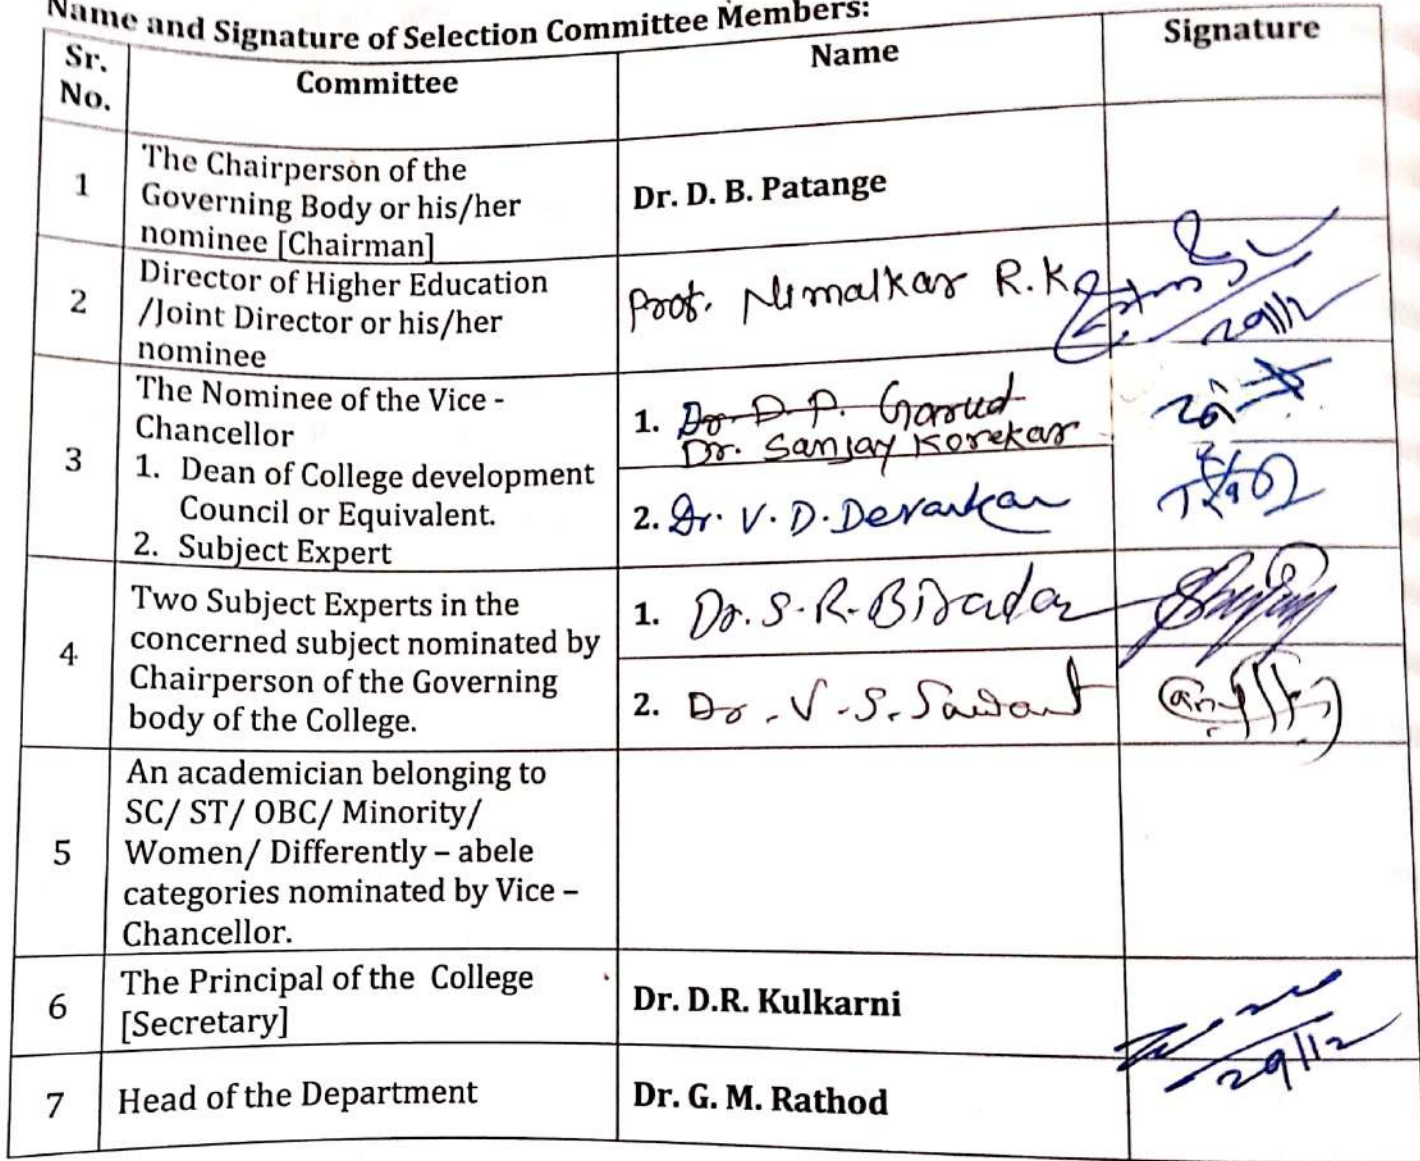 Name and Signature of Selection Committee Members:
Sr. No. Committee Name Signature
1 The Chairperson of the Governing Body or his/her nominee [Chairman] Dr. D. B. Patange
2 Director of Higher Education /Joint Director or his/her nominee Prof. Nimalkar R.K 29/12
3 The Nominee of the Vice - Chancellor
1. Dean of College development Council or Equivalent.
2. Subject Expert
1. Dr. D. P. Garud
Dr. Sanjay Korekar
2. Dr. V. D. Devarkar
4 Two Subject Experts in the concerned subject nominated by Chairperson of the Governing body of the College.
1. Dr. S. R. Biradar
2. Dr. V. S. Sawant
5 An academician belonging to SC/ ST/ OBC/ Minority/ Women/ Differently – abele categories nominated by Vice – Chancellor.
6 The Principal of the College [Secretary] Dr. D.R. Kulkarni 29/12
7 Head of the Department Dr. G. M. Rathod